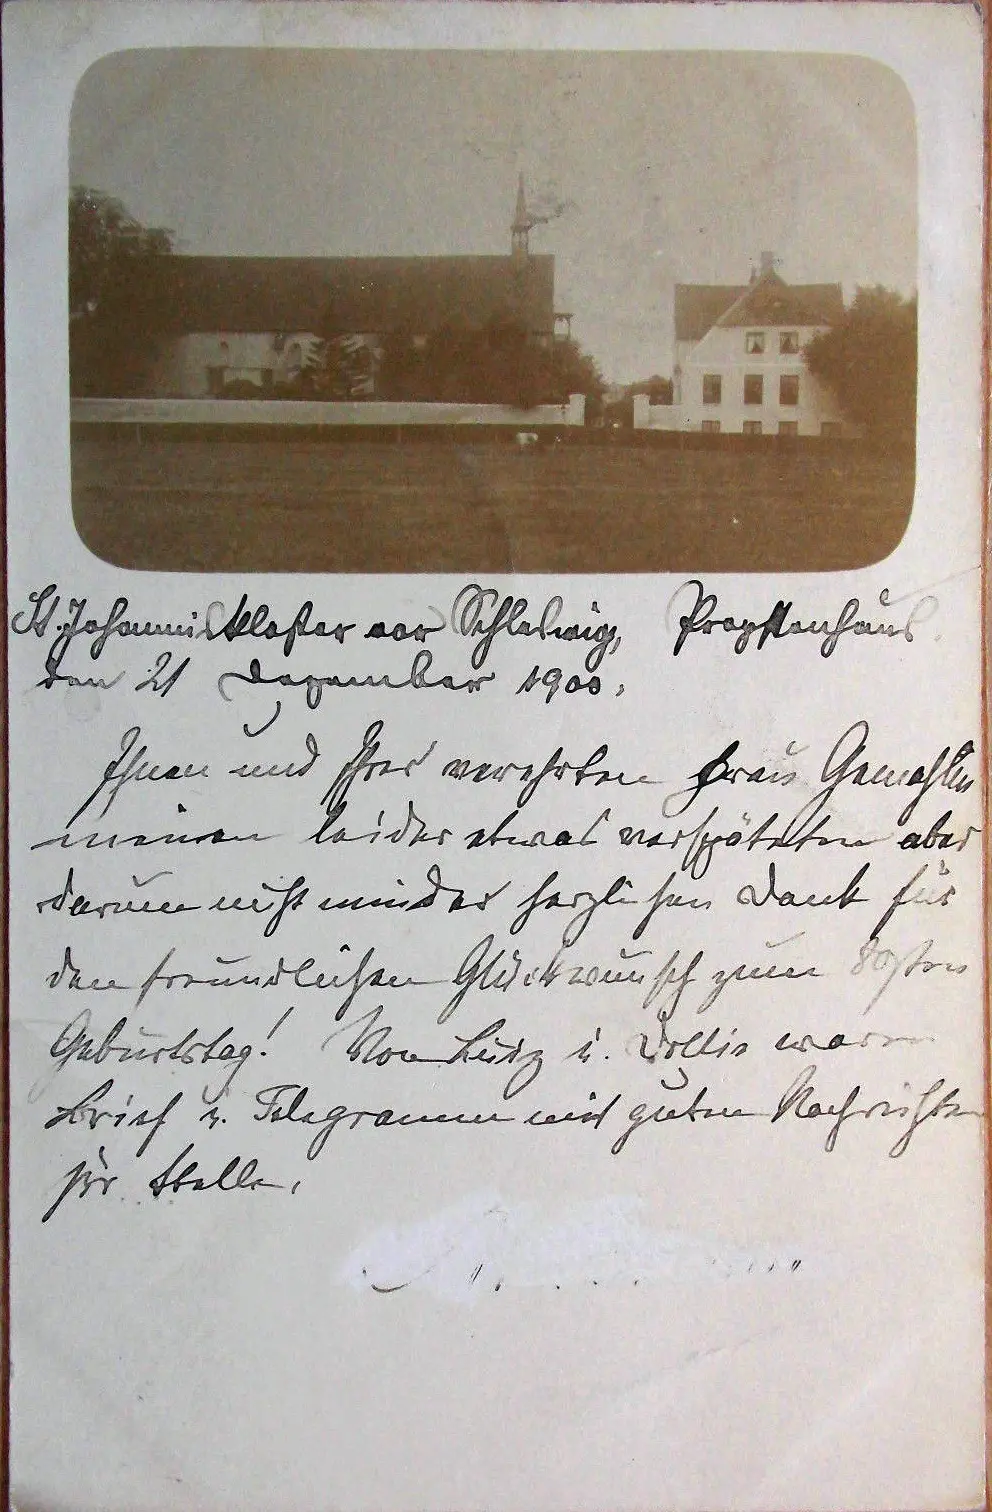 St. Johanniskloster vor Schleswig, Propstenhaus.
den 21 Dezember 1900.
Ihnen und Ihrer verehrten Frau Gemahlin
meinen leider etwas verspäteten aber
darum nicht minder herzlichen Dank für
den freundlichen Glückwunsch zum 80sten
Geburtstag! Von Luiz u. waren
Brief u. Telegramm mit guten Nachrichten
zur Stelle.